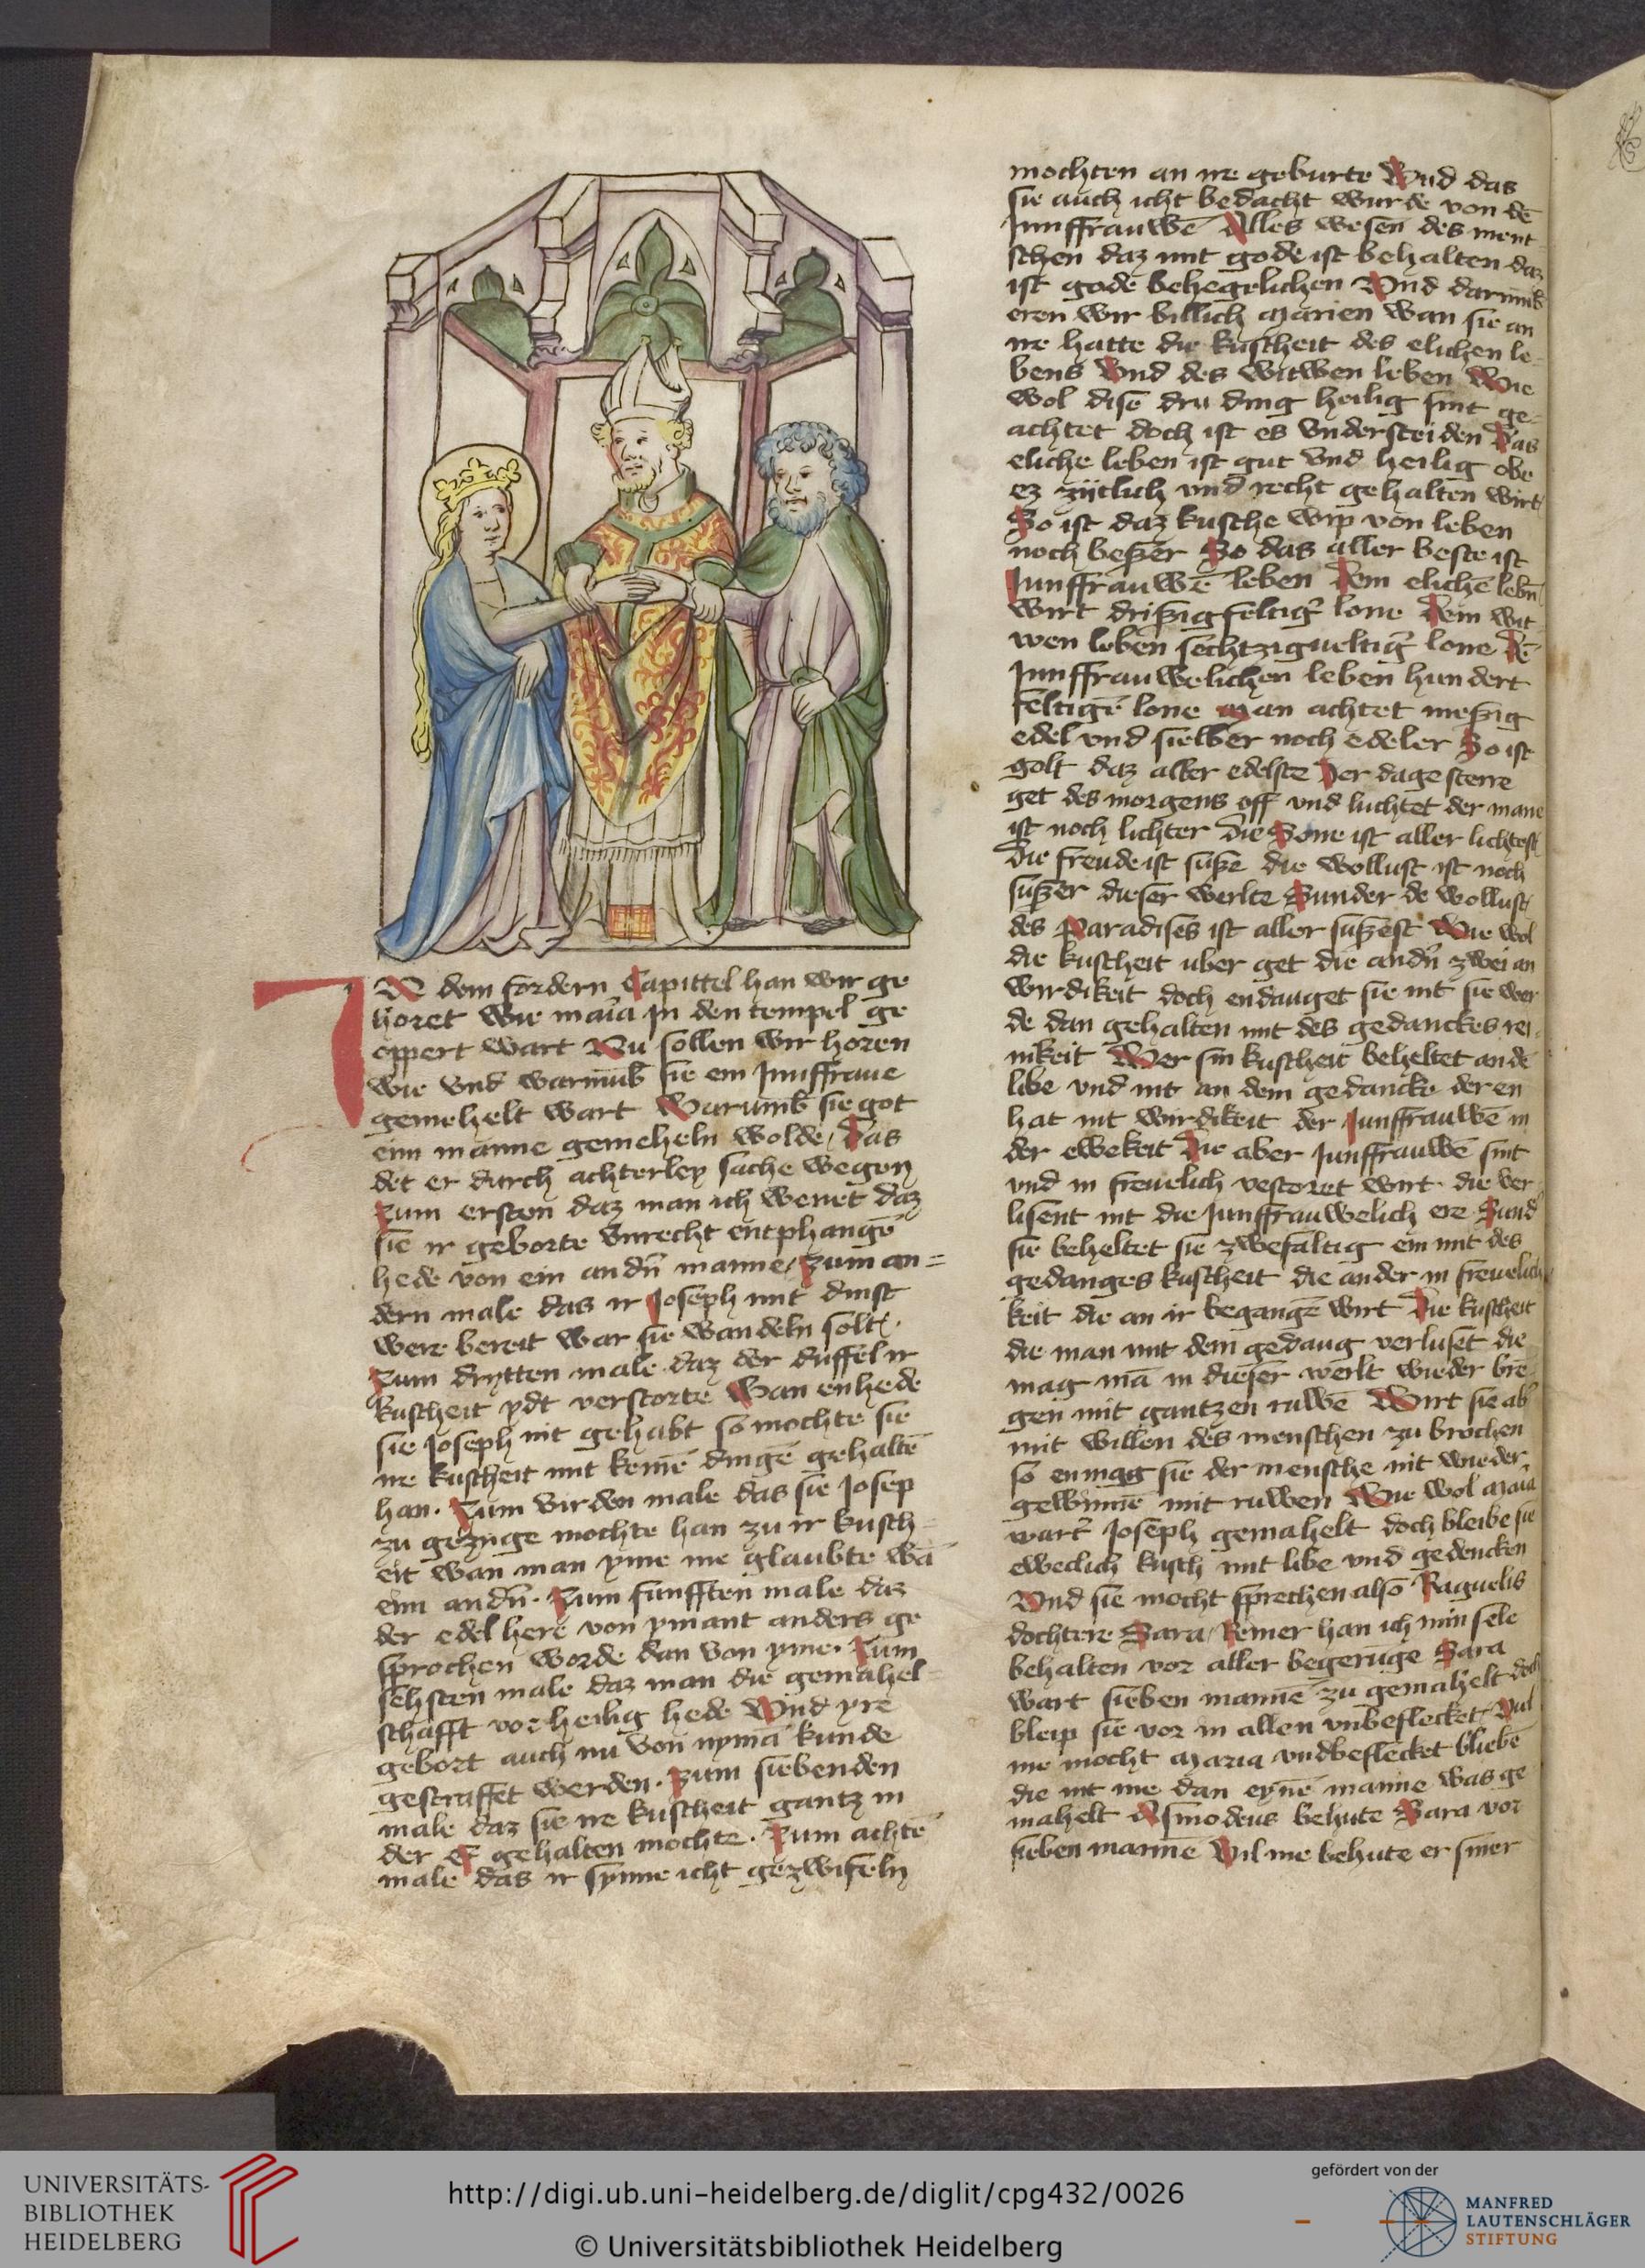 IN dem fordern Capittel han wir ge
horet wie mar̄ia jn den tempel ge
oppert wart Nu sollen wir horen
wie vnd warumb sie ein Junffrauwe
gemehelt wart Warumb sie got
eim manne gemeheln wolde Das
det er durch achterley sache wegen
Zum ersten daz man ich wenet daz
sie ir geborte vnrecht entphangē
hede von ein andn̄ manne Zum an=
dern male das ir Joseph mit dinst
were bereit war sie wandeln solt
Zum drytten male daz der duffel ir
kuscheit ydt verstorte Wan enhede
sie Joseph nit gehabt so mochte sie
ire kuscheit mit keinē dingē gehaltē
han. Zum virden male das sie Josep
zu gezuge mochte han zu ir kusch=
eit wan man yme me glaubte wā
eim andn̄. Zum funfften male daz
der edel here von ymant anders ge
sprochen worde dan von yme. Zum
sehsten male daz man die gemahel=
schafft vor heilig hede Vnd yre
gebort auch nu von nymā kunde
gestraffet werden. Zum siebenden
male daz sie ire kuscheit gantz in
der E gehalten mochte. Zum achtē
male das ir synne icht gezwifeln
mochten an ire geburte Vnd das
sie auch icht bedacht wurde von dē
Junffrauwē Alles wesen des ment
schen daz mit gode ist behalten daz
ist gode behegelichen Vnd darumb
eren wir billich Marien wan sie an
ire hatte die kuscheit des elichen le=
bens Vnd des witwen leben Wie
wol dise dru ding heilig sint ge=
achtet doch ist es vnderscheiden Das
eliche leben ist gut vnd heilig obe
ez zijtlich vnd recht gehalten wirt
So ist daz kusche wip von leben
noch beßer So das aller beste ist
Junffrauwē leben Dem elichē lebn̄
wirt drißigfeltig' lone Dem wit=
wen leben sechtzigueltig' lone Dē
Junffrauwelichen leben hundert
feltigē lone Man achtet meßig
edel vnd sielber noch edeler So ist
golt daz aller edelste Der dage sterre
get des morgens off vnd luchtet der mane
ist noch lichter die Sonne ist aller lichtest
Die freude ist suße die wollust ist noch
sußer dieser werlte Sunder de wollust
des Paradises ist aller sußest Wie wol
die kuscheit uber get die andn̄ zwei an
wirdikeit doch endauget sie nit sie wer
de dan gehalten mit des gedanckes rei=
nikeit Wer sin kuscheit beheltet an dē
libe vnd nit an dem gedancke der en
hat nit wirdikeit der Junffrauwē in
der ewekeit Die aber Junffrauwē sint
vnd in freuelich vestoret wirt. die ver
lisent nit die Junffrauwelich ere Sund'
sie beheltet sie zwefaltig ein mit des
gedanges kuscheit die ander in freuelich
keit die an ir begangē wirt Die kuscheit
die man mit dem gedang verluset die
mag mā in dieser werlt wieder bre=
gen mit gantzen ruwē Wirt sie ab'
mit willen des menschen zu brochen
so enmag sie der mensche nit wieder
gewinnē mit ruwen Wie wol maria
wart Joseph gemahelt doch bleibe sie
eweclich kusch mit libe vnd gedencken
Vnd sie mocht sprechen also Raguelis
dochtere Sara Reiner han ich min sele
behalten vor aller begerunge Sara
wart sieben mannē zu gemahelt doch
bleip sie vor in allen vnbeflecket Vil
me mocht Maria vndbeflecket bliebē
die nit me dan eynē manne was ge
mahelt Asmodeus behute Sara vor
sieben mannē Vil me behute er siner
UNIVERSITÄTS-
BIBLIOTHEK
HEIDELBERG
http://digi.ub.uni-heidelberg.de/diglit/cpg432/0026
© Universitätsbibliothek Heidelberg
gefördert von der
MANFRED
LAUTENSCHLÄGER
STIFTUNG